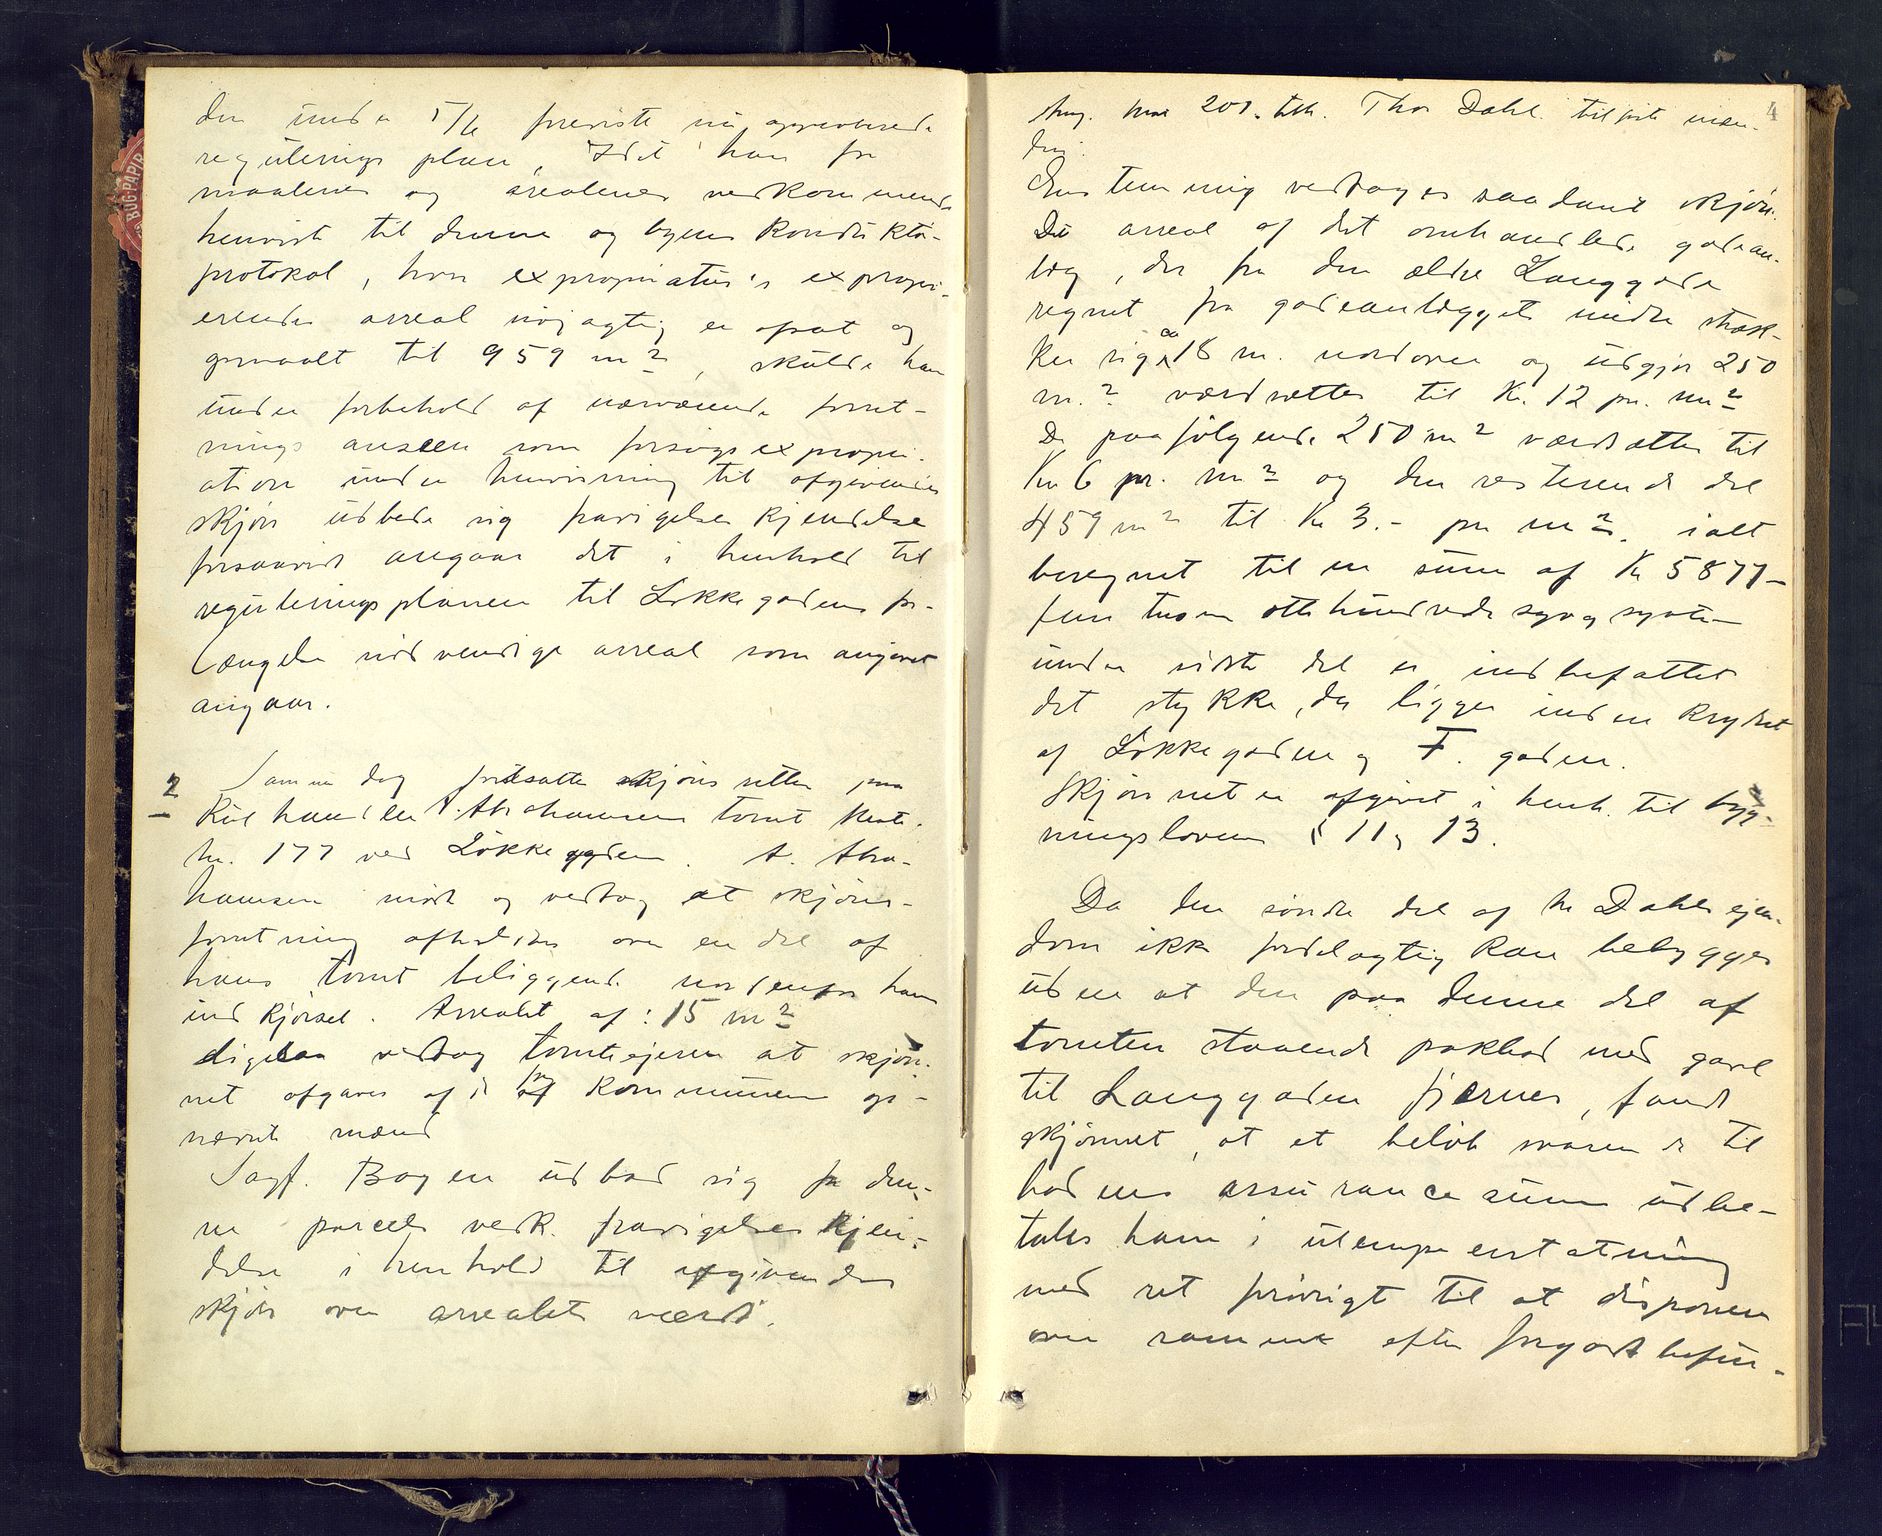 den under 5/6 foreviste nu approberede
reguleringsplan. Idet han for
maalenes og arealenes vedkommende
henviste til denne og byens Konduktør-
protokol, hvor expropriatus's expropri-
erende areal nøjagtig er opsat og
opmaalt til 959 m², skulde han
under forbehold af nærværende forret-
nings ansken som forsøgsexpropri-
ation under henvisning til afgivendes
skjøn udbede sig fravigelses kjendelse
forsaavidt angaar det i henhold til
reguleringsplanen til Løkkegadens for-
længelse nødvendige areal som angivet
angaar.
2 Samme dag fortsatte skjøns retten paa
Kulhandler A. Abrahamsens tomt Matr.
nr. 177 ved Løkkegaden. A. Abra-
hamsen mødt og vedtog at skjøns-
forretning afholdes over en del af
hans tomt beliggende nordenfor hans
indkjørsel. Arealet af: 15 m²
Ligesaa vedtog tomteejeren at skjøn-
net afgaves af de af Kommunen op-
nævnte mænd
Sagf. Bogen udbad sig for den-
ne parcels vedk. fravigelses kjen-
delse i henhold til afgivendes
skjøn over arealets værdi.
4
Ang. Mat 201. tilh. Thor Dahl. tilførte
Enstemmig vedtoges saadant skjøn:
Det areal af det omhandlede gadean-
læg, der fra den ældre Langgade
regnet fra gadeanlæggets midte stræk-
ker sig ca 18 m. nordover og udgjør 250
m.² værdsættes til Kr. 12 pr. m²
De paafølgende 250 m² værdsættes til
Kr 6 pr. m² og den resterende del
459 m² til Kr 3.- pr m². ialt
beregnet til en sum af Kr 5877-
fem tusen otte hundrede syv og sytti-
under sidste del er indbefattet
det stykke, der ligger inden krydset
af Løkkegaden og F. gaden.
Skjønnet er afgivet i henh. til byg-
ningsloven § 11 og 13.
Da den søndre del af hr Dahls ejen-
dom ikke fordelagtig kan bebygges
uden at den paa denne del af
tomten staaende pakbod med gavl
til Langgaden fjernes, fandt
skjønnet, at et beløb svarende til
bodens assurancesum udbe-
tales ham i ulempe erstatning
med ret forøvrigt til at disponere
over samme efter forgodtbefin-